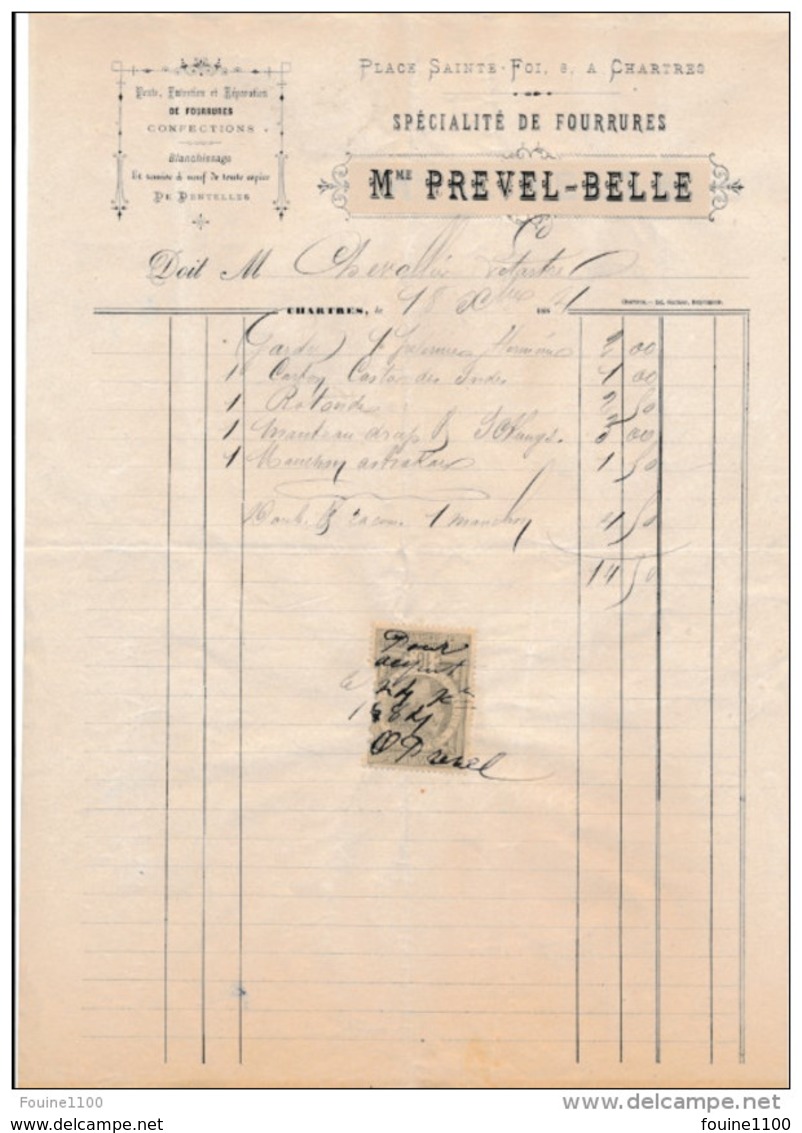 Vente, Entretien et Réparation
DE FOURRURES
CONFECTIONS
Blanchissage
Et remise à neuf de toute espèce
DE DENTELLES
PLACE SAINTE-FOI, 8, A CHARTRES
SPÉCIALITÉ DE FOURRURES
MME PREVEL-BELLE
Doit M Chevallier
CHARTRES, le 18 Xbre 188
Garde 1 2 00
1 Castor des Indes 1 00
1 Rotonde 2 50
1 Manteau drap 3 00
1 Manchon astrakan 1 50
1 manchon 4 50
14 50
Pour
acquit
le 24 X
188
Prevel
Fouine1100
delcampe.net
www.delcampe.net
fouine1100